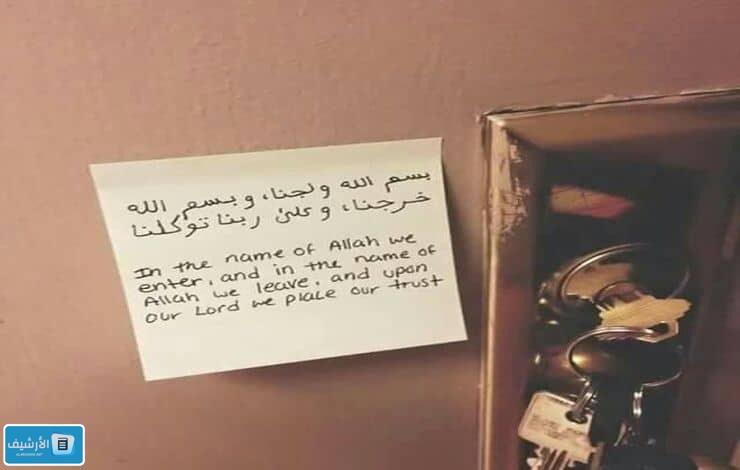 بسم الله ولجنا، وبسم الله
خرجنا، وعلى ربنا توكلنا
In the name of Allah we
enter, and in the name of
Allah we leave, and upon
our Lord we place our trust
الأرشيف